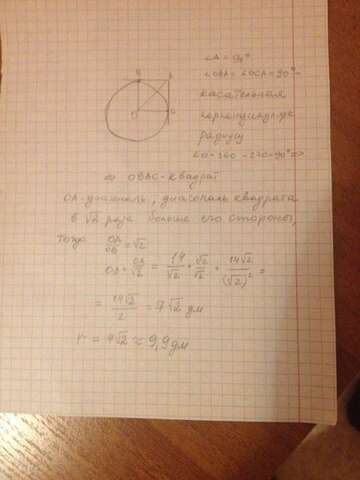 ∠A = 90°
∠OBA = ∠OCA = 90° -
касательная
перпендикулярна
радиусу
∠O = 360 - 270 = 90° =>
=> OBAC - квадрат
OA - диагональ, диагональ квадрата
в √2 раза больше его стороны,
Тогда OA/OB = √2
OB = OA/√2 = 14/√2 · √2/√2 = 14√2/(√2)² =
= 14√2/2 = 7√2 дм
r = 7√2 ≈ 9,9 дм